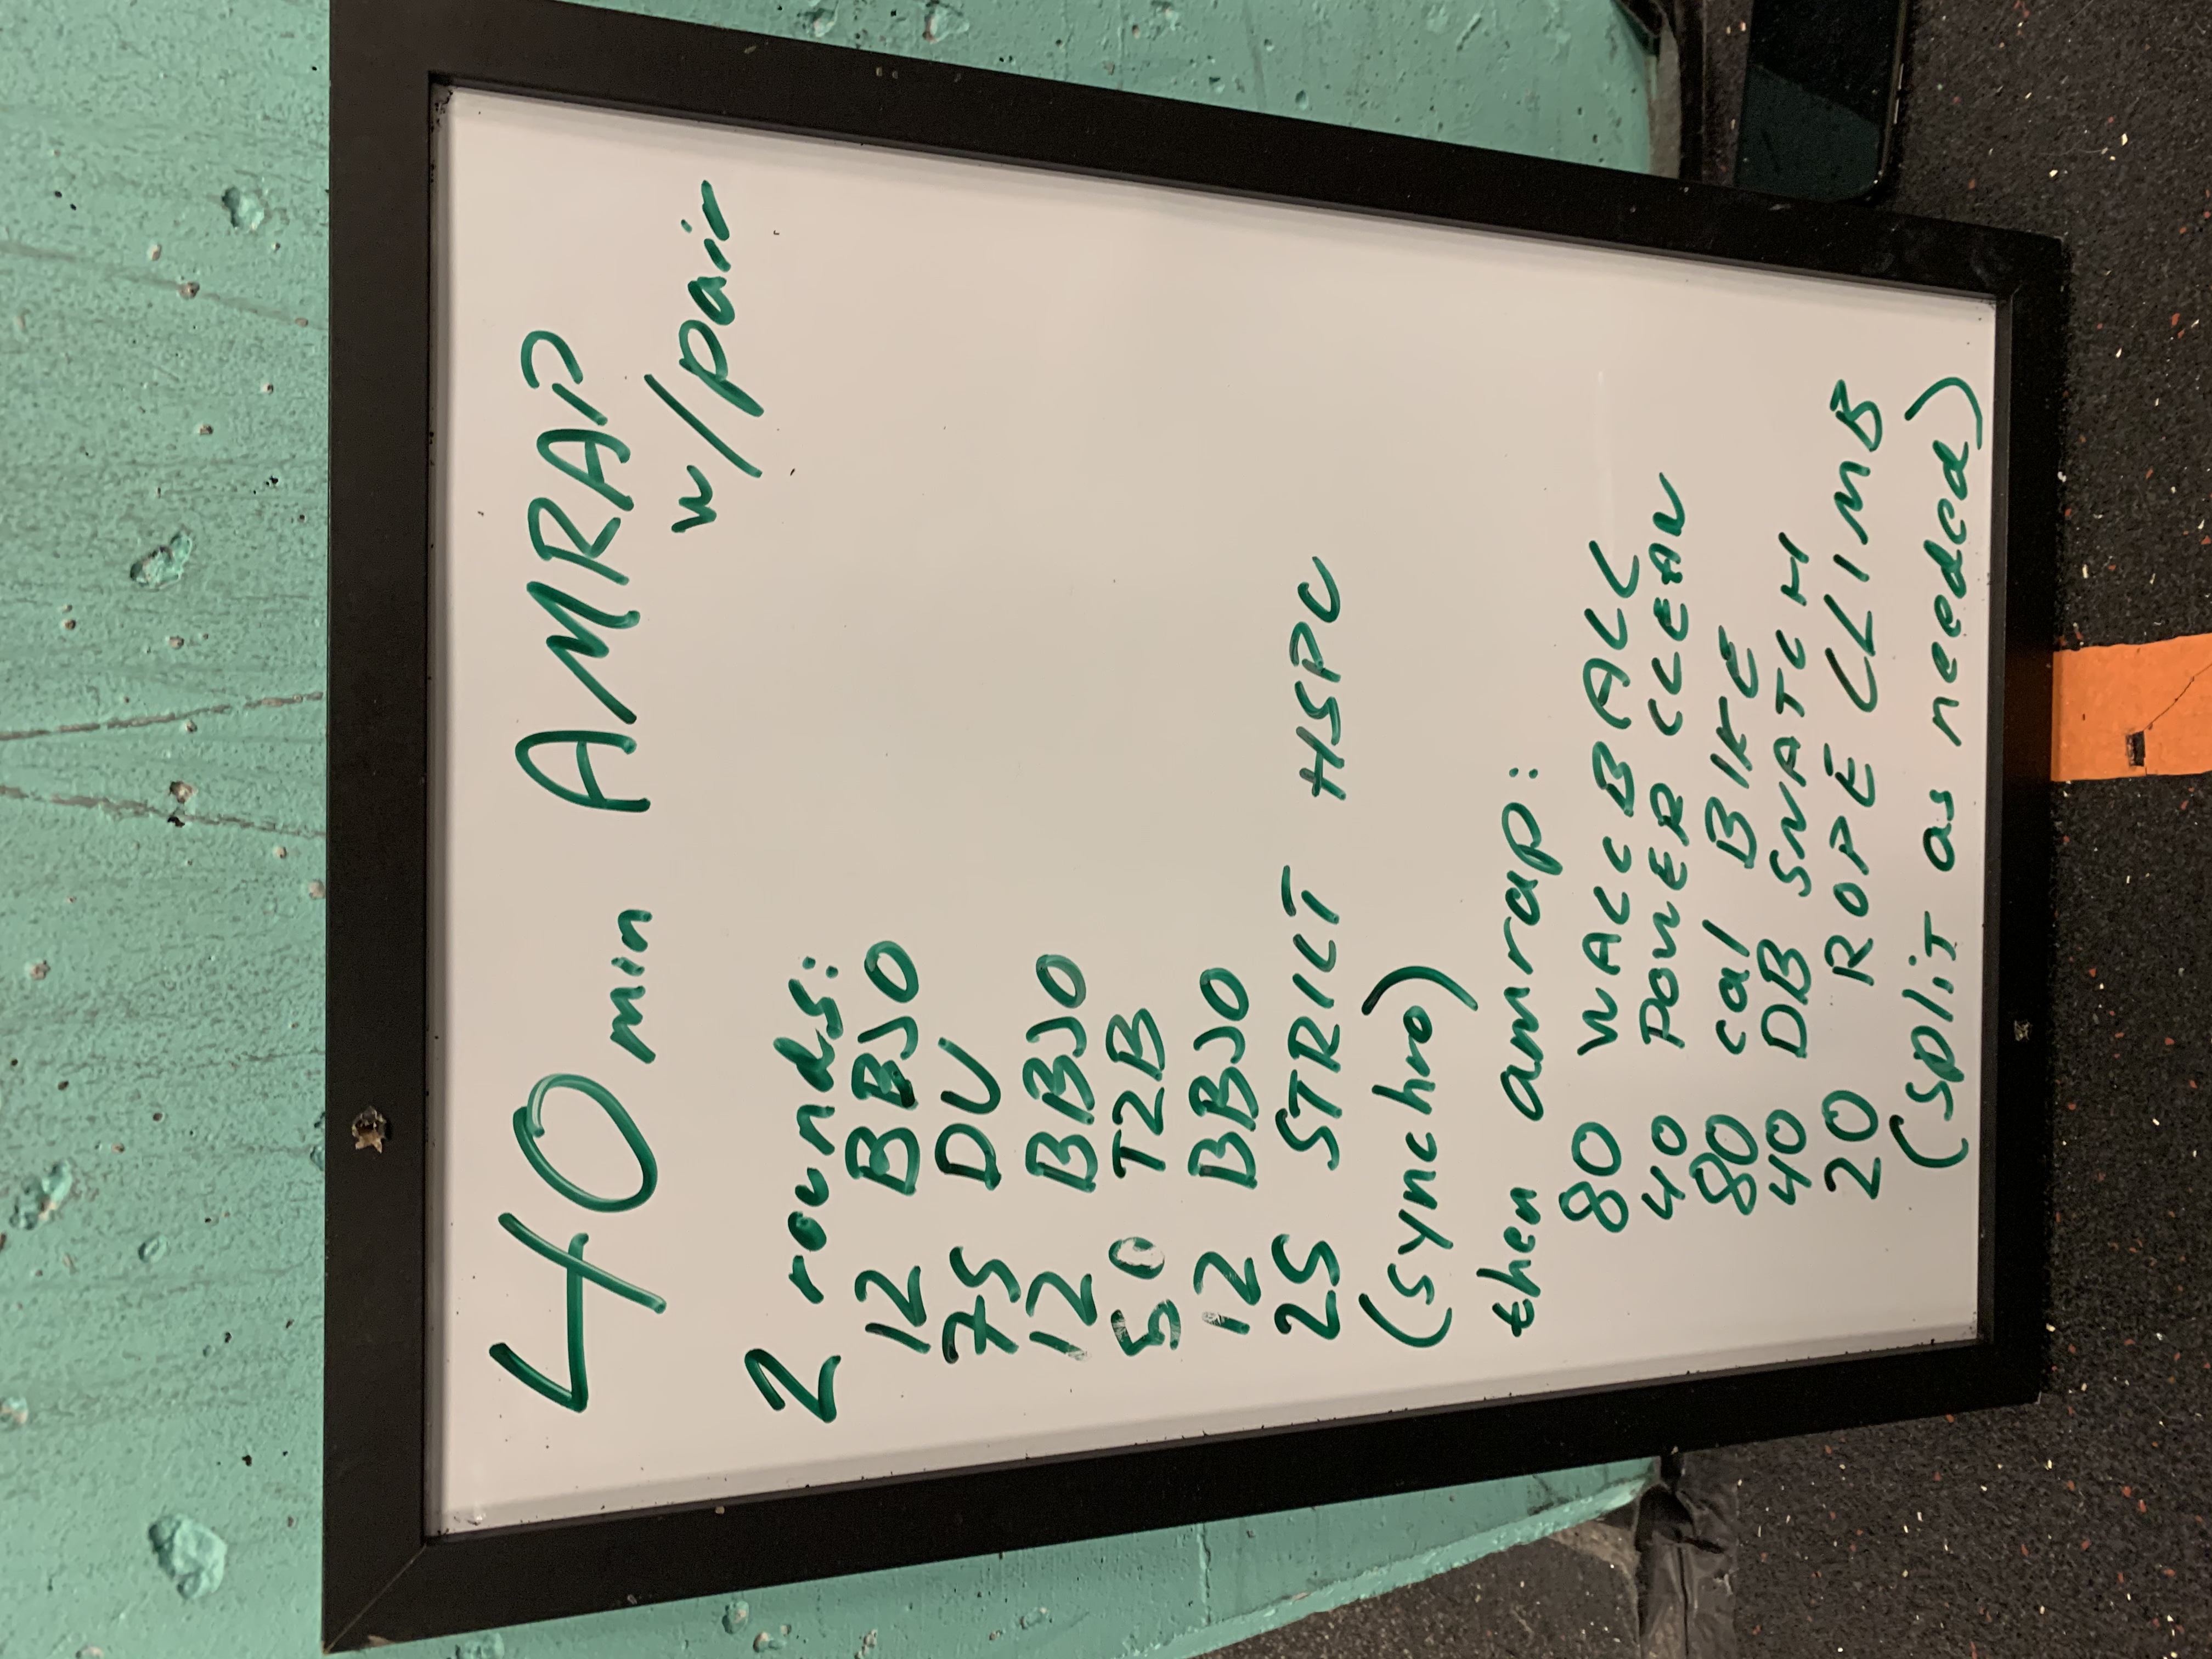 40 min AMRAP
w/pair
2 rounds:
12 BBJO
75 DU
12 BBJO
50 T2B
12 BBJO
25 STRICT HSPU
(synchro)
then amrap:
80 WALL BALL
40 POWER CLEAN
80 cal BIKE
40 DB SNATCH
20 ROPE CLIMB
(split as needed)